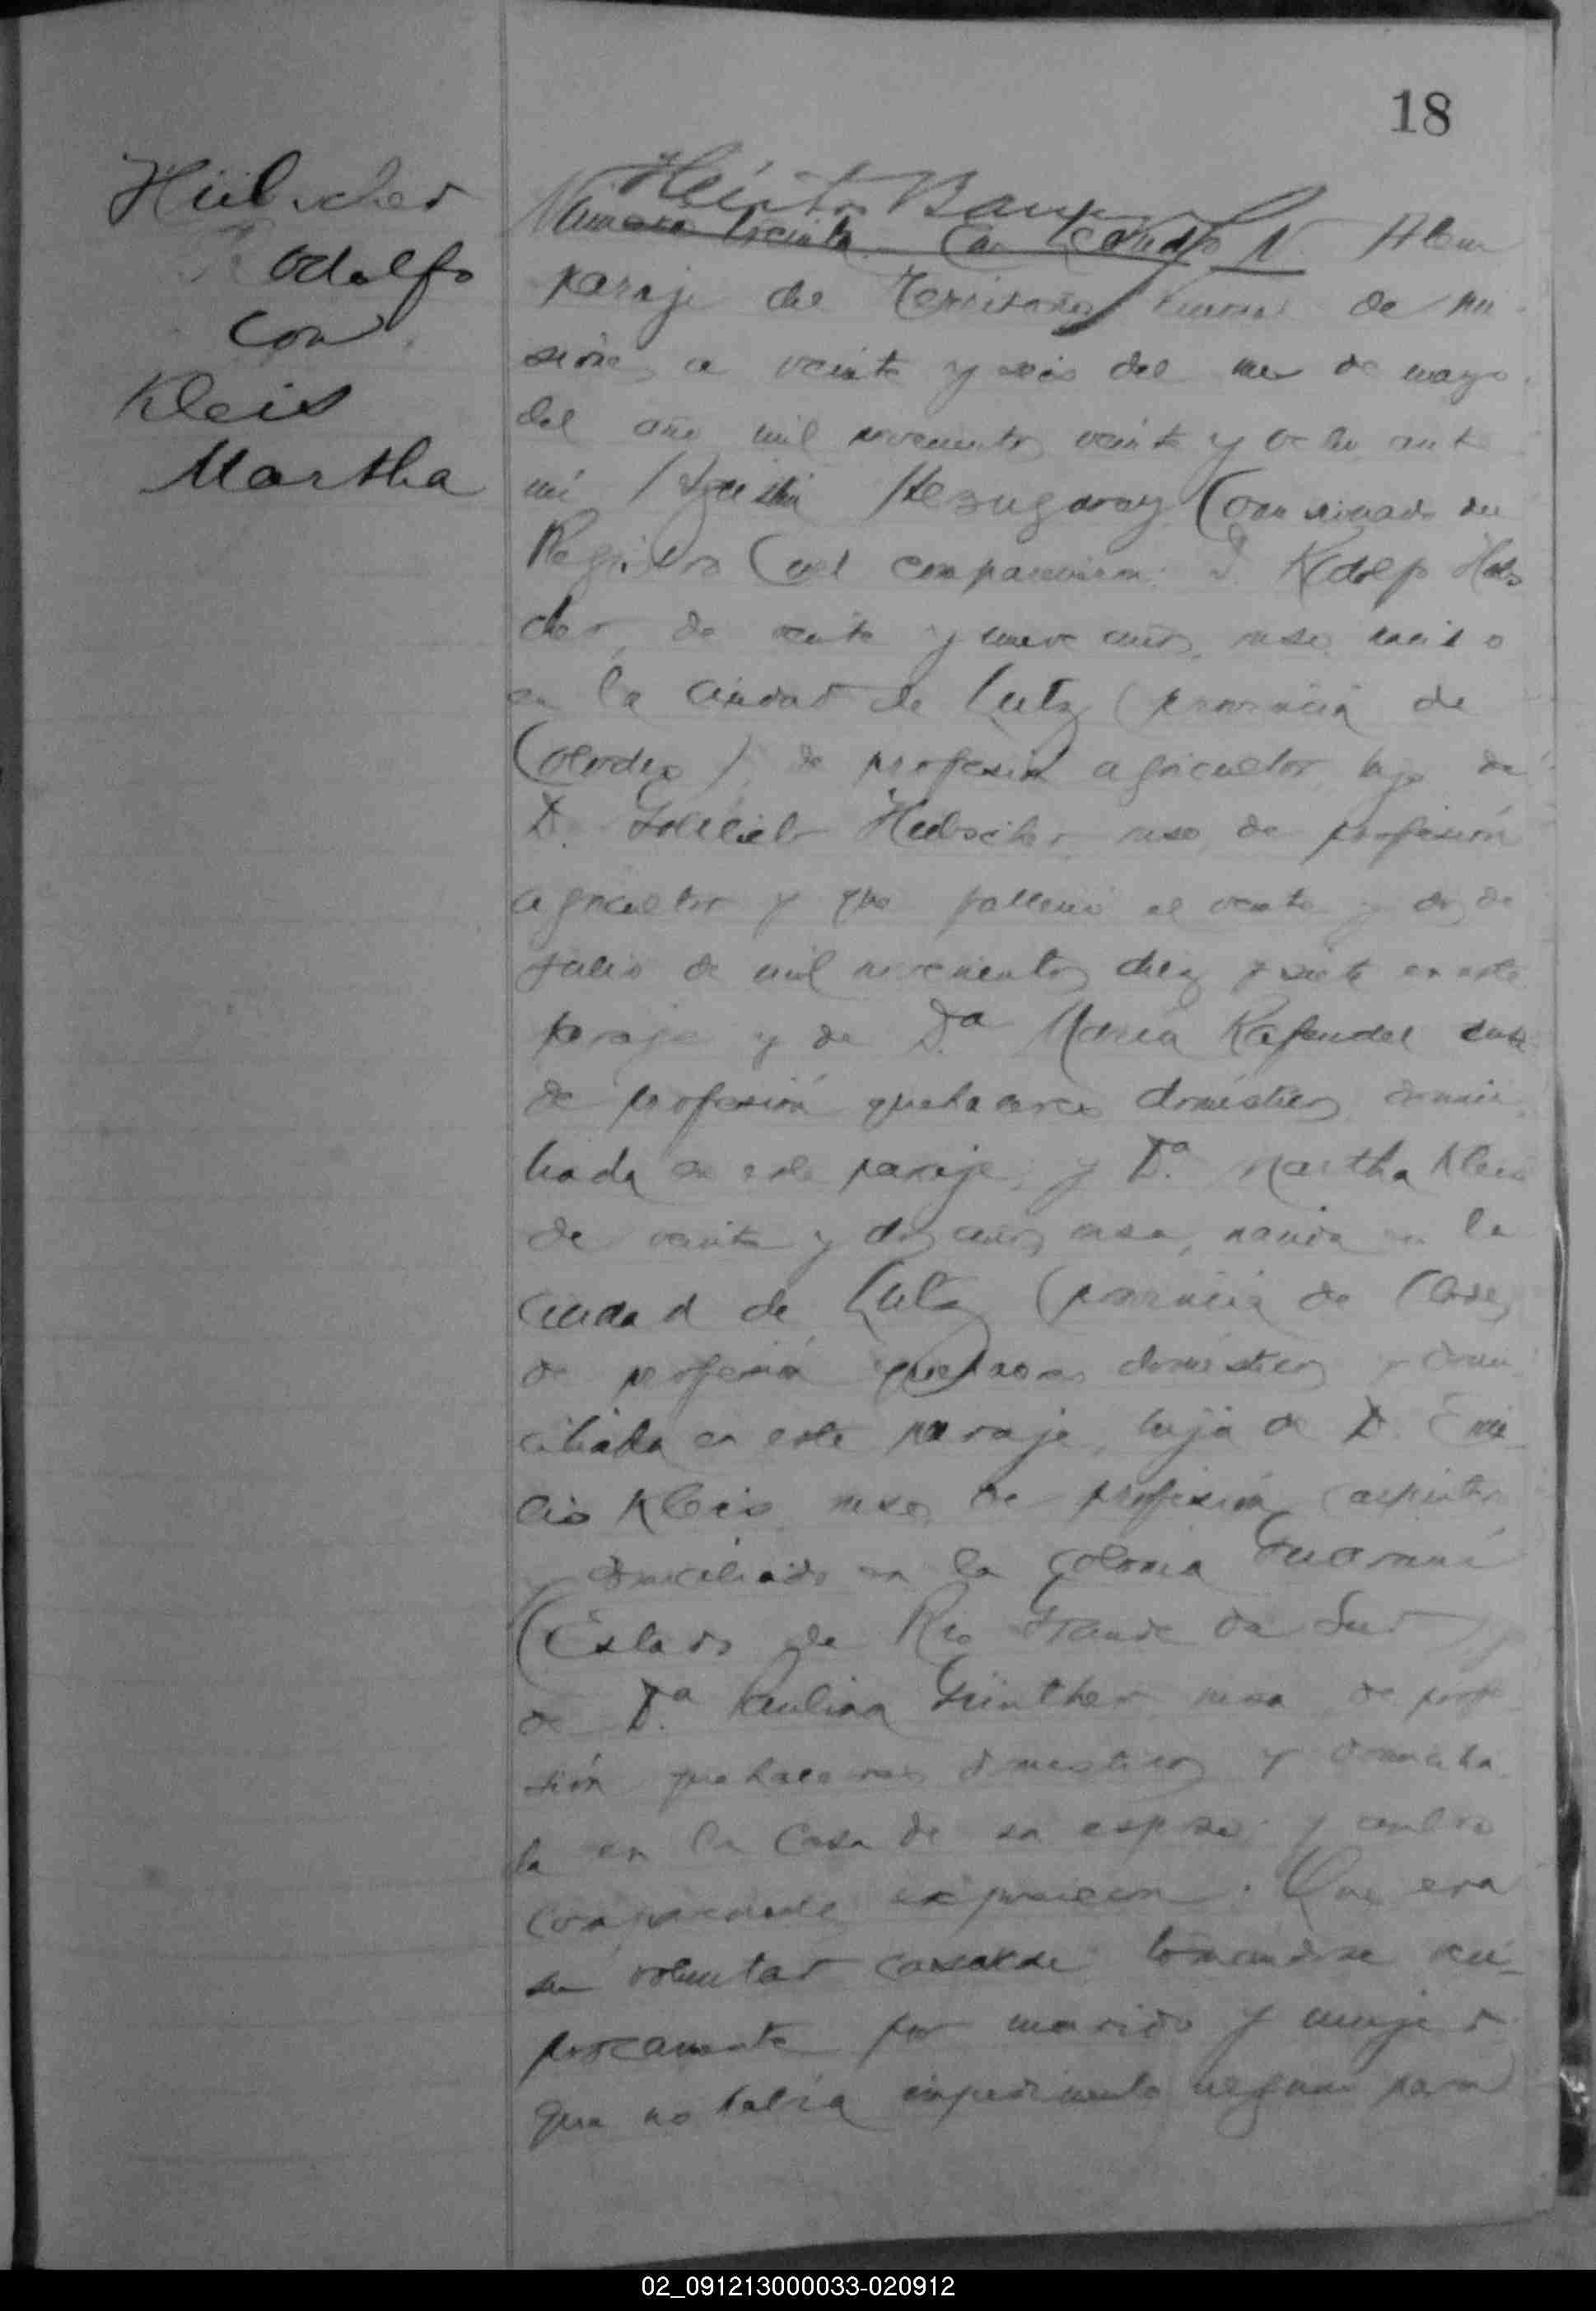 18
Hübscher
Rodolfo
con
Kleis
Martha
Número treinta. En Leandro N. Alem
paraje del Territorio de Mi
siones a veinte y seis del mes de mayo
del año mil novecientos veinte y ocho ante
mí Comisionado del
Registro Civil comparecieron: D. Rodolfo Hübs
cher, de veinte y nueve años, ruso, nacido
en la ciudad de Lutz (provincia de
) de profesión agricultor, hijo de
D. Gottlieb Hübscher, ruso, de profesión
agricultor y que falleció el veinte y dos de
Julio de mil novecientos diez y siete en este
paraje y de Da. María rusa
de profesión quehaceres domésticos domici
liada en este paraje; y Da. Martha Kleis
de veinte y dos años, rusa, nacida en la
ciudad de Lutz (provincia de
de profesión quehaceres domésticos y domi
ciliada en este paraje, hija de D. Emi
lio Kleis ruso, de profesión carpintero
y domiciliado en la Colonia Guaraní
(Estado de Rio Grande do Sud) y
de Da. Paulina Günther rusa de profe
sión quehaceres domésticos y domicilia
da en la casa de su esposo; y ambos
comparecientes expusieron: Que era
su voluntad casarse tomándose recí
procamente por marido y mujer
que no había impedimento ninguno para
02_091213000033-020912